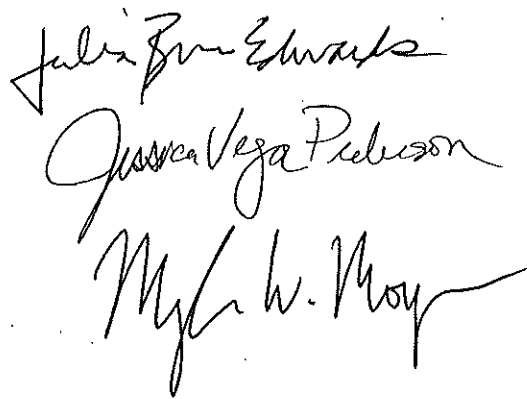 Julia Brim Edwards
Jessica Vega Pederson
W. Moy